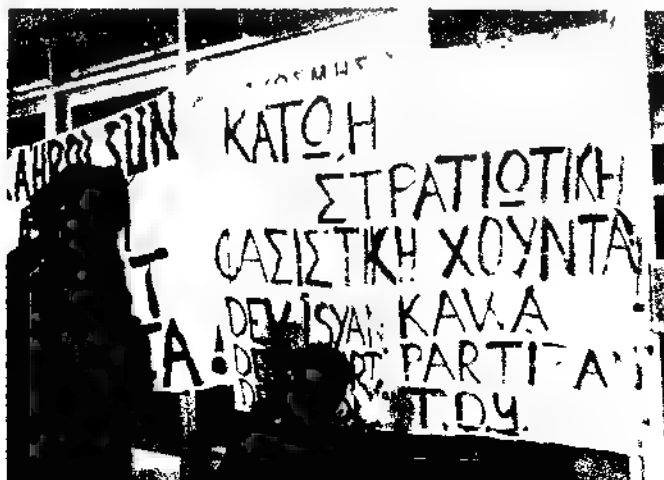 KAHROLSUN
T
TA!
ΚΑΤΩ Η
ΣΤΡΑΤΙΩΤΙΚΗ
ΦΑΣΙΣΤΙΚΗ ΧΟΥΝΤΑ!
DEV. İSYAN. KAWA
PARTİZAN
T.D.Y.